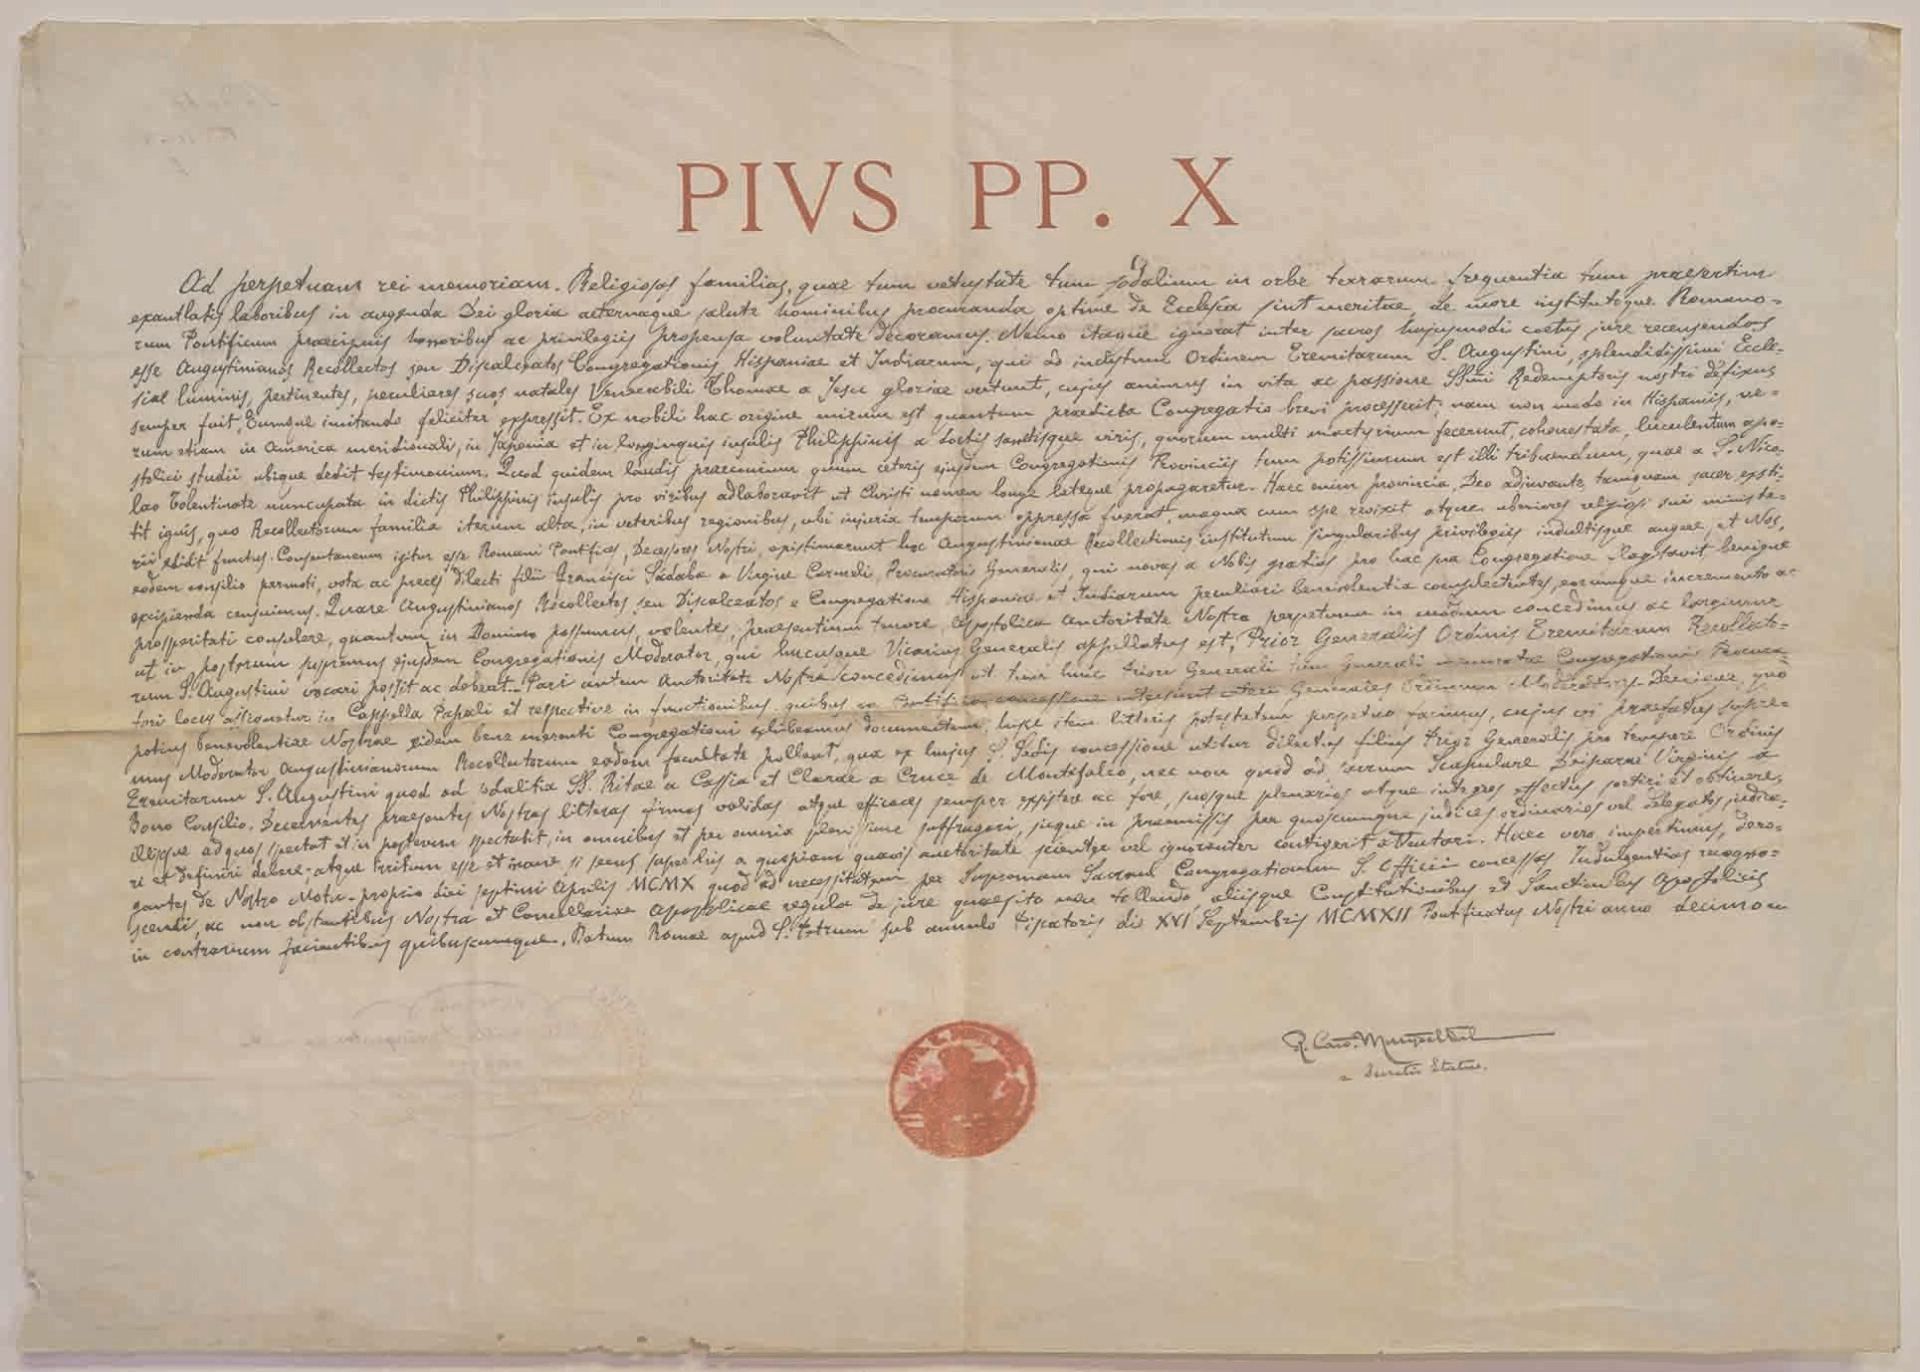 PIVS PP. X
Ad perpetuam rei memoriam. Religiosas familias, quae tum vetustate tum sodalium in orbe terrarum frequentia tum praesertim
exantlatis laboribus in augenda Dei gloria aeternaque salute hominibus procuranda optime de Ecclesia sint meritae, de more institutoque Romano-
rum Pontificum praecipuis honoribus ac privilegiis propensa voluntate decoramus. Nemo itaque ignorat inter sacros hujusmodi coetus jure recensendos
esse Augustinianos Recollectos seu Discalceatos Congregationis Hispaniae et Indiarum, qui ad inclytum Ordinem Eremitarum S. Augustini, splendidissimi Eccle-
siae luminis, pertinentes, peculiares suos natales Venerabili Thomae a Jesu gloriae vertunt, cujus animus in vita ac passione SSmi Redemptoris nostri defixus
semper fuit, Eumque imitando feliciter expressit. Ex nobili hac origine mirum est quantum praedicta Congregatio brevi processerit; nam non modo in Hispaniis, ve-
rum etiam in America meridionali, in Japonia et in longinquis insulis Philippinis a doctis sanctisque viris, quorum multi martyrium fecerunt, cohonestata, luculentum apo-
stolici studii ubique dedit testimonium. Quod quidem laudis praeconium quum ceteris ejusdem Congregationis Provinciis tum potissimum est illi tribuendum, quae a S. Nico-
lao Tolentinate nuncupata in dictis Philippinis insulis pro viribus adlaboravit ut Christi nomen longe lateque propagaretur. Haec enim provincia, Deo adjuvante, tamquam sacer exsti-
tit ignis, quo Recollectorum familia iterum alta, in veteribus regionibus, ubi injuria temporum oppressa fuerat, magna cum spe revixit atque uberiores religiosi sui ministe-
rii edidit fructus. Consentaneum igitur esse Romani Pontifices, Decessores Nostri, existimarunt hoc Augustinianae Recollectionis institutum singularibus privilegiis indultisque augere, et Nos,
eodem consilio permoti, vota ac preces dilecti filii Francisci Sádaba a Virgine Carmeli, Procuratoris Generalis, qui novas a Nobis gratias pro hac sua Congregatione flagitavit benigne
excipienda censuimus. Quare Augustinianos Recollectos seu Discalceatos e Congregatione Hispaniae et Indiarum peculiari benevolentia complectentes, eorumque incremento ac
prosperitati consulere, quantum in Domino possumus, volentes, praesentium tenore, Apostolica Auctoritate Nostra perpetuum in modum concedimus ac largimur
ut in posterum supremus ejusdem Congregationis Moderator, qui hucusque Vicarius Generalis appellatus est, Prior Generalis Ordinis Eremitarum Recollecto-
rum S. Augustini vocari possit ac debeat. Pari autem Auctoritate Nostra concedimus ut tum huic Priori Generali tum Generali memoratae Congregationis Procura-
tori locus assignetur in Cappella Papali et respective in functionibus quibus ex Pontificia concessione intersunt ceteri Generales Ordinum Moderatores. Denique, quo
potius benevolentiae Nostrae eidem bene merenti Congregationi exhibeamus documentum, hisce item litteris potestatem perpetuo facimus, cujus vi praefatus supre-
mus Moderator Augustinianorum Recollectorum eadem facultate polleat, qua ex hujus S. Sedis concessione utitur dilectus filius Prior Generalis pro tempore Ordinis
Eremitarum S. Augustini quod ad sodalitia SS. Ritae a Cassia et Clarae a Cruce de Montefalco, nec non quod ad sacrum Scapulare Deiparae Virginis a
Bono Consilio. Decernentes praesentes Nostras litteras firmas validas atque efficaces semper existere ac fore, suosque plenarios atque integros effectus sortiri et obtinere,
illisque ad quos spectat et in posterum spectabit, in omnibus et per omnia plenissime suffragari, sicque in praemissis per quoscumque judices ordinarios vel delegatos judica-
ri et definiri debere; atque irritum esse et inane si secus super his a quopiam quavis auctoritate scienter vel ignoranter contigerit attentari. Haec vero impertimus, dero-
gantes de Nostro Motu-proprio diei septimi Aprilis MCMX quod ad necessitatem per Supremam Sacram Congregationem S. Officii concessas Indulgentias recogno-
scendi, ac non obstantibus Nostra et Cancellariae Apostolicae regula de jure quaesito non tollendo, aliisque Constitutionibus et Sanctionibus Apostolicis
in contrarium facientibus quibuscumque. Datum Romae apud S. Petrum sub annulo Piscatoris die XVI Septembris MCMXII Pontificatus Nostri anno decimo
R. Card. Merry del Val
a Secretis Status.